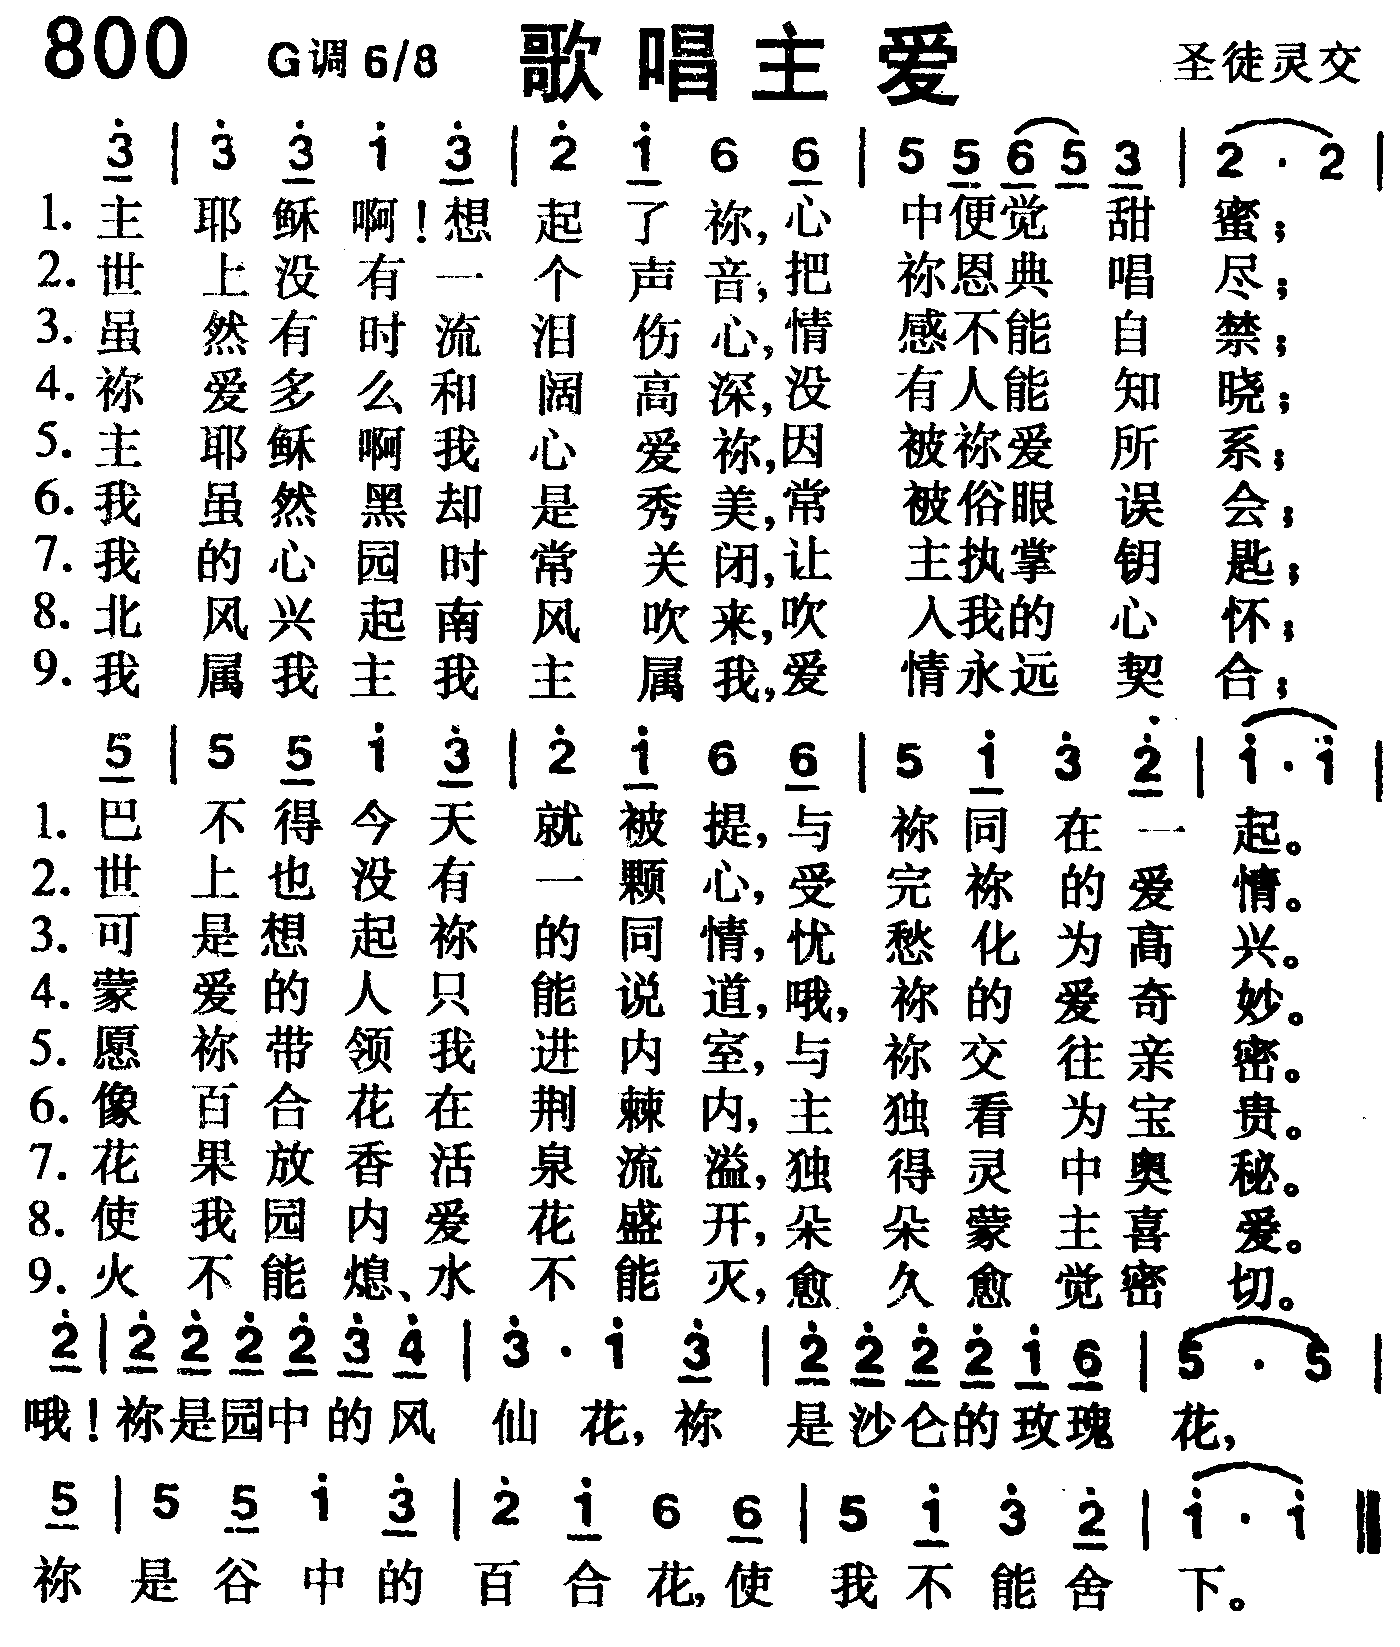 800 G调 6/8 歌唱主爱 圣徒灵交
3 | 3 3 1 3 | 2 1 6 6 | 5 5 6 5 3 | 2 · 2 |
1. 主耶稣啊!想起了祢,心中便觉甜蜜;
2. 世上没有一个声音,把祢恩典唱尽;
3. 虽然有时流泪伤心,情感不能自禁;
4. 祢爱多么和阔高深,没有人能知晓;
5. 主耶稣啊我心爱祢,因被祢爱所系;
6. 我虽然黑却是秀美,常被俗眼误会;
7. 我的心园时常关闭,让主执掌钥匙;
8. 北风兴起南风吹来,吹入我的心怀;
9. 我属我主我主属我,爱情永远契合;
5 | 5 5 1 3 | 2 1 6 6 | 5 1 3 2 | 1 · 1 |
1. 巴不得今天就被提,与祢同在一起。
2. 世上也没有一颗心,受完祢的爱情。
3. 可是想起祢的同情,忧愁化为高兴。
4. 蒙爱的人只能说道,哦,祢的爱奇妙。
5. 愿祢带领我进内室,与祢交往亲密。
6. 像百合花在荆棘内,主独看为宝贵。
7. 花果放香活泉流溢,独得灵中奥秘。
8. 使我园内爱花盛开,朵朵蒙主喜爱。
9. 火不能熄、水不能灭,愈久愈觉密切。
2 | 2 2 2 2 3 4 | 3 · 1 3 | 2 2 2 2 1 6 | 5 · 5 |
哦!祢是园中的风仙花,祢是沙仑的玫瑰花,
5 | 5 5 1 3 | 2 1 6 6 | 5 1 3 2 | 1 · 1 ‖
祢是谷中的百合花,使我不能舍下。